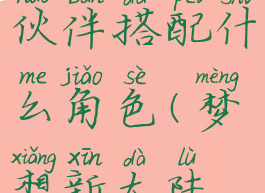 huǒ bàn dā pèi shí
伙伴搭配什
me jiǎo sè mèng
么角色(梦
xiǎng xīn dà lù
想新大陆